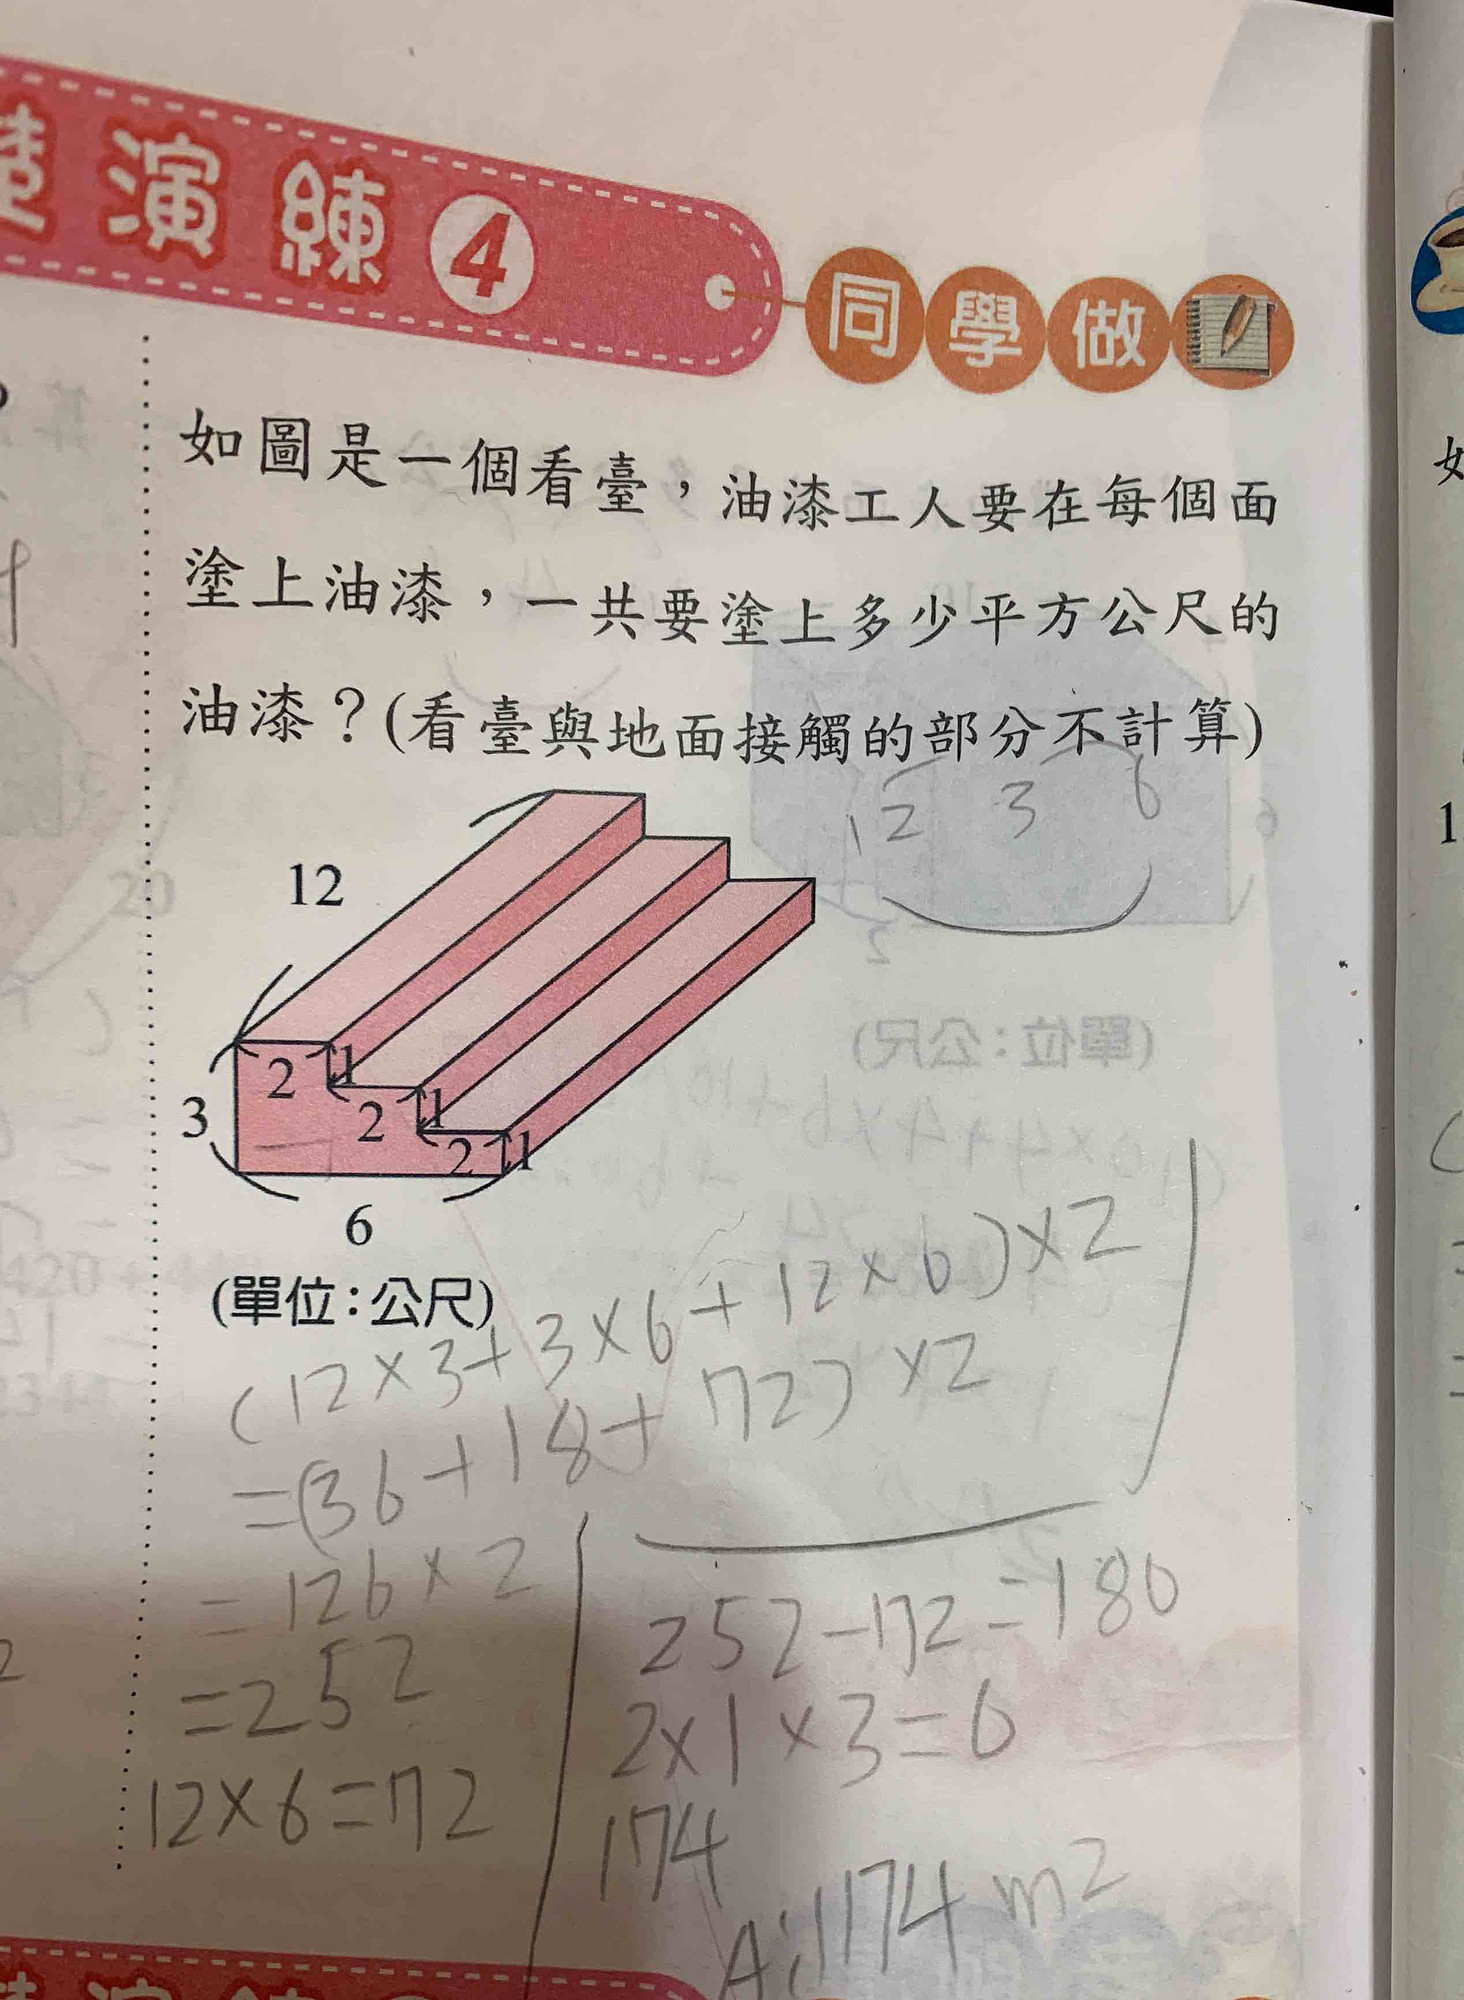 演練4 同學做
如圖是一個看臺，油漆工人要在每個面
塗上油漆，一共要塗上多少平方公尺的
油漆？(看臺與地面接觸的部分不計算)
12 3 6
12
2 1
3 2 1
2 1
6
(單位：公尺)
(12×3+3×6+12×6)×2
=(36+18+72)×2
=126×2
=252
12×6=72
252-72=180
2×1×3=6
174
A:174m2
20